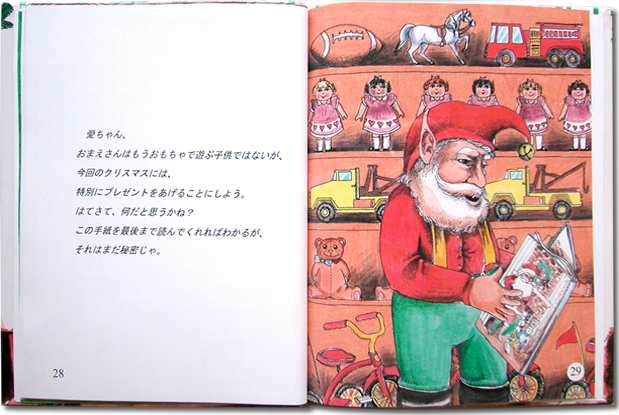 愛ちゃん、
おまえさんはもうおもちゃで遊ぶ子供ではないが、
今回のクリスマスには、
特別にプレゼントをあげることにしよう。
はてさて、何だと思うかね？
この手紙を最後まで読んでくれればわかるが、
それはまだ秘密じゃ。
28
29